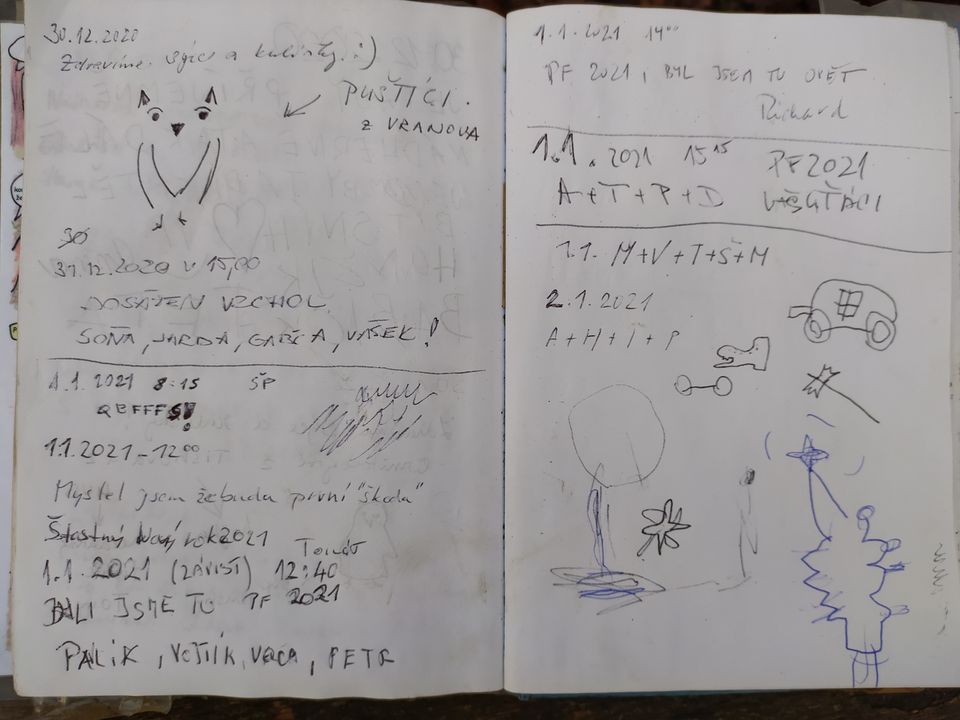 30.12.2020
Zdravíme. sýčc a kulíšky. :)
PUŠTÍCI.
Z VRANOVA
30
31.12.2020 v 15,00
DOSAŽEN VRCHOL.
SOŇA, JARDA, GABČA, VAŠEK!
1.1.2021 8:15 ŠP
1.1.2021 - 12⁰⁰
Myslel jsem že budu první "škoda"
Šťastný Nový rok 2021
Tomáš
1.1.2021 (ZÁVIST) 12:40
BYLI JSME TU PF 2021
PALIK, VOTÍIK, VERCA, PETR
1.1.2021 14⁰⁰
PF 2021, BYL JSEM TU OPĚT
Richard
1.1.2021 15¹⁵ PF2021
A+T+P+D VŠUŤÁCI
1.1. M+V+T+Š+M
2.1.2021
A+H+I+P